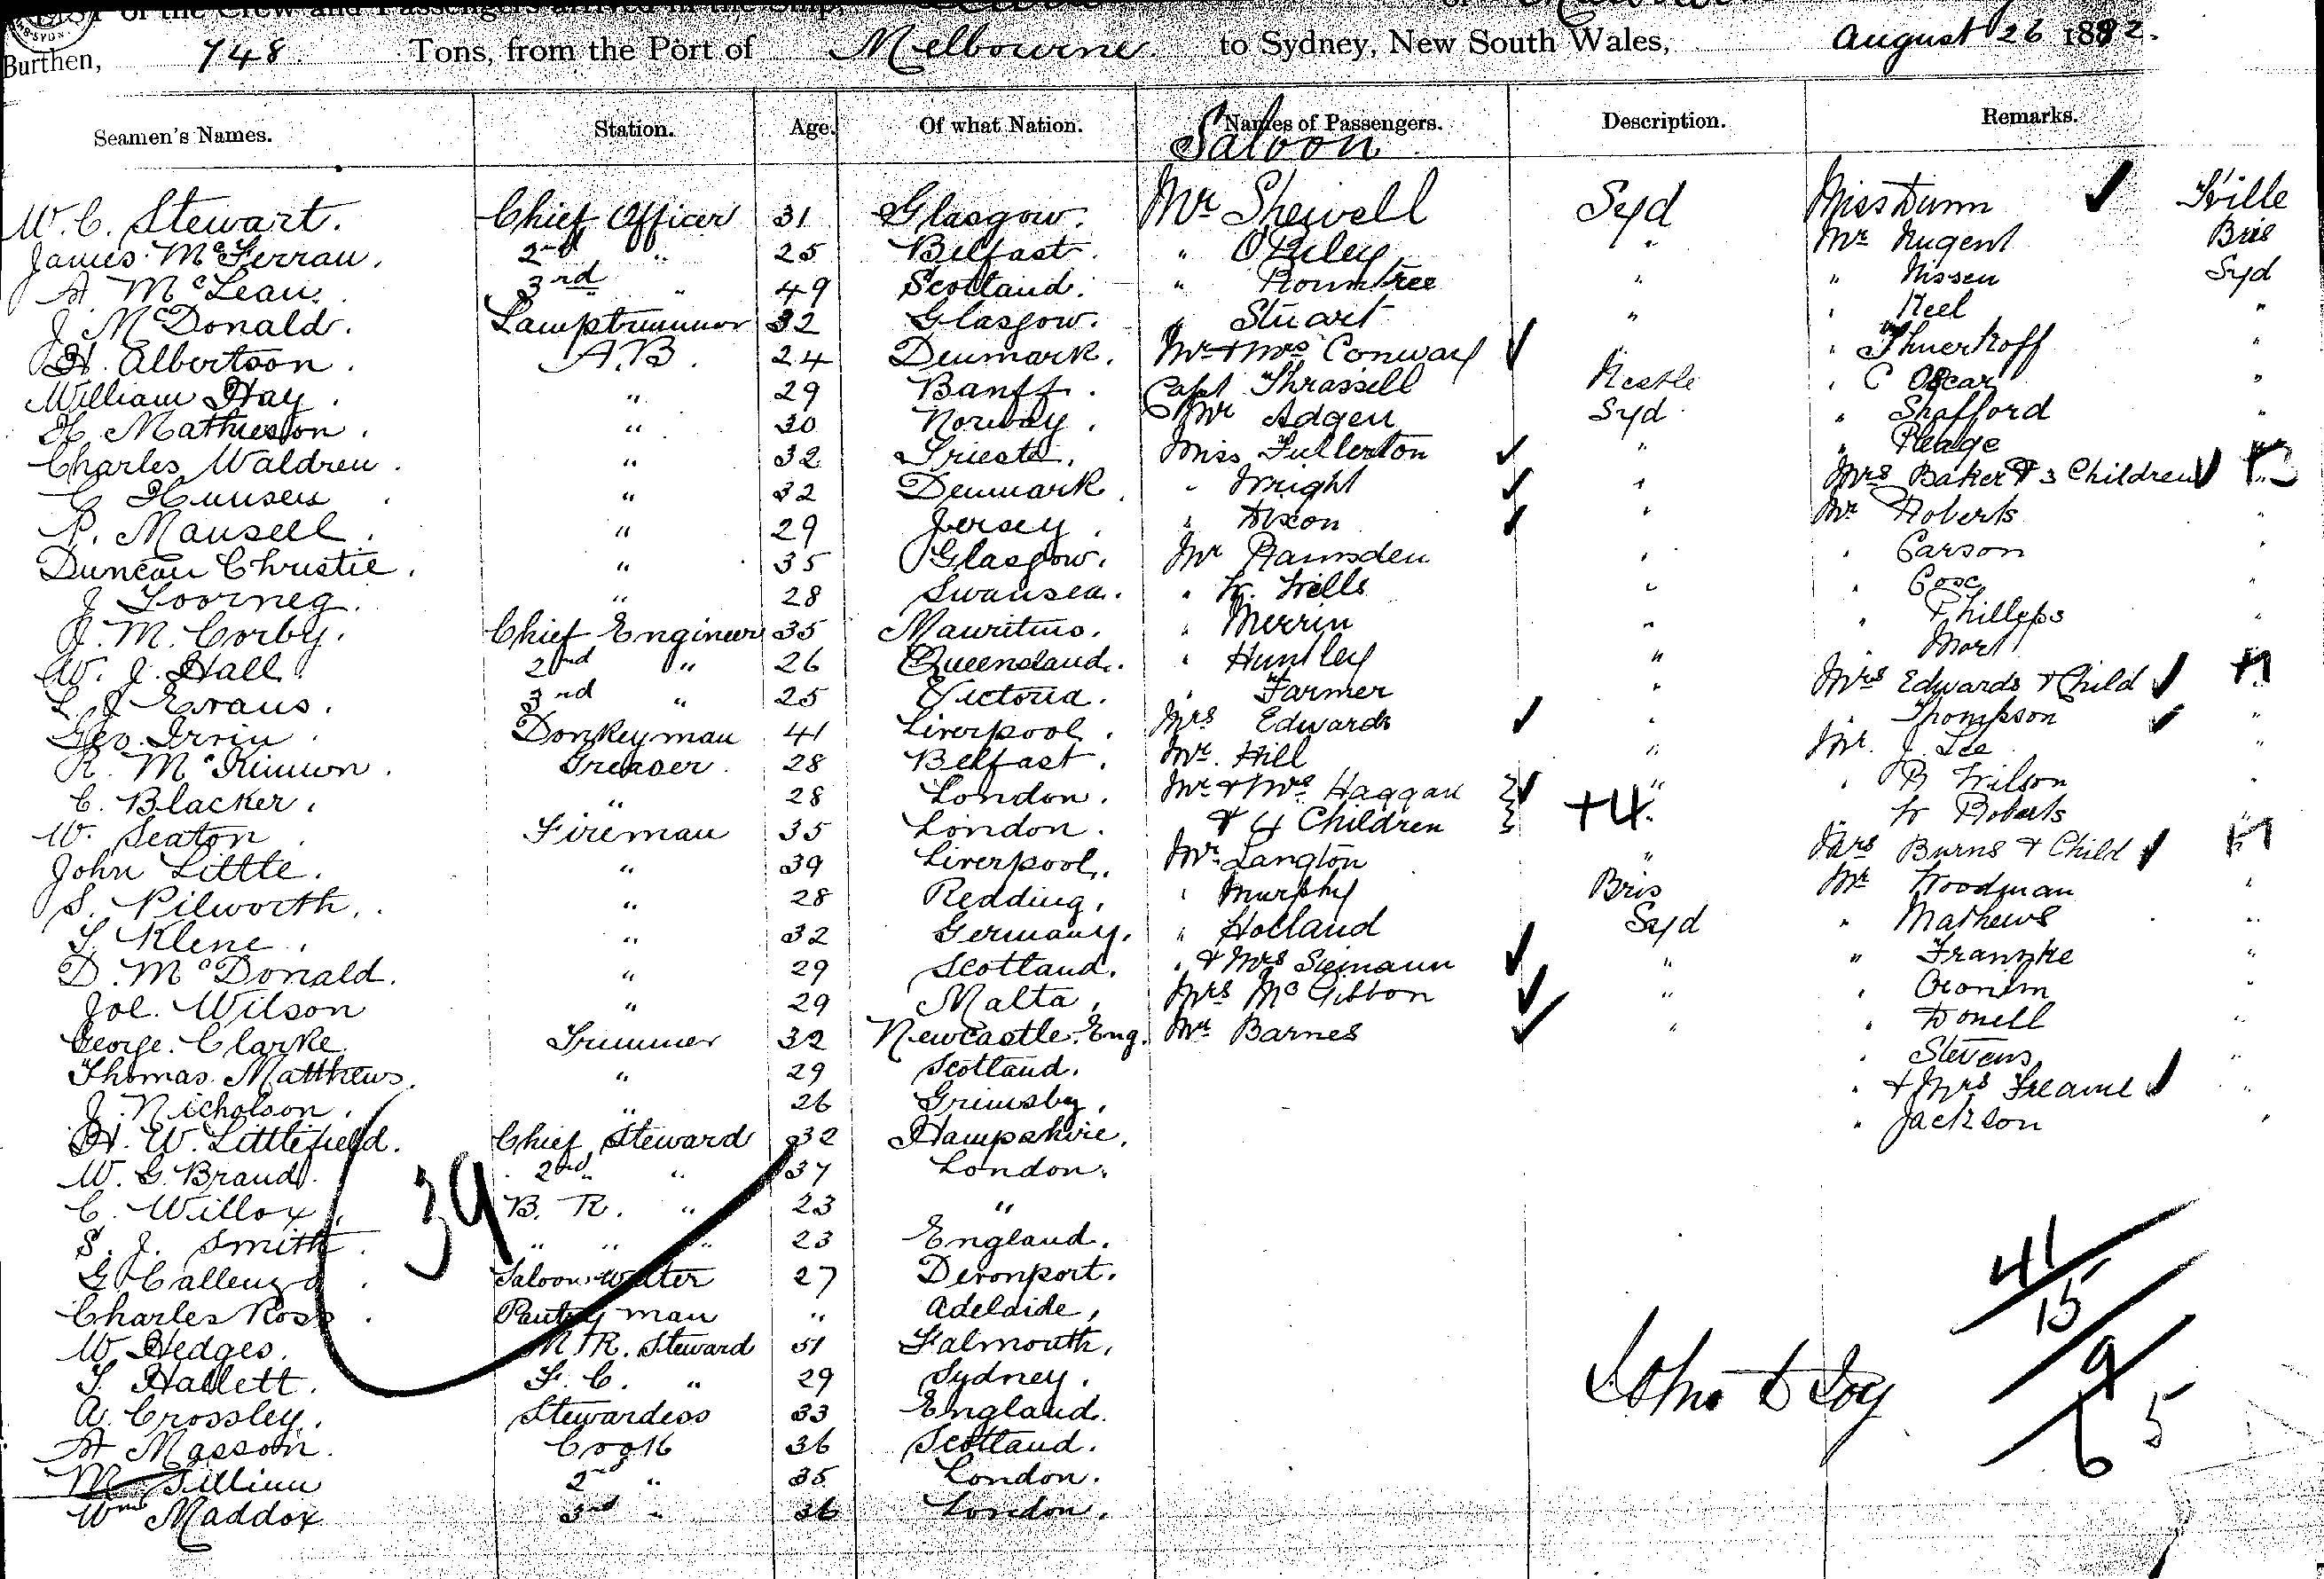 of the Crew and Passengers arrived in the Ship,
Burthen, 748 Tons, from the Port of Melbourne to Sydney, New South Wales, August 26 1882.
Seamen's Names. Station. Age. Of what Nation. Names of Passengers. Description. Remarks.
Saloon
W. C. Stewart. Chief Officer 31 Glasgow. Mr Shewell Syd Miss Dunn ✓ T'ville
James McFerran. 2nd " 25 Belfast. " O'Riley " Mr Nugent Bris
A McLean. 3rd " 49 Scotland. " Rountree " " Nissen Syd
J. McDonald. Lamptrimmer 32 Glasgow. " Stuart " " Keel "
H. Albertson. A.B. 24 Denmark. Mr & Mrs Conway ✓ " "
William Hay. " 29 Banff. Capt Thrassell Ncstle " C Oscar "
H. Mathieson. " 30 Norway. Mr Adgen Syd " Shafford "
Charles Waldren. " 32 Trieste. Miss Fullerton ✓ " "
C Hunsen " 32 Denmark. " Wright ✓ " Mrs Baker & 3 Children ✓
P. Mansell. " 29 Jersey. " Dixon ✓ " Mr Roberts "
Duncan Christie. " 35 Glasgow. Mr Ramsden " " Carson "
J " 28 Swansea. " W. Wells " " "
J. M. Corby. Chief Engineer 35 Mauritius. " Merrin " " Phillips "
W. J. Hall. 2nd " 26 Queensland. " Huntley " " Mort
L J Evans. 3rd " 25 Victoria. " Farmer " Mrs Edwards & Child ✓
Geo. Irvin. Donkeyman 41 Liverpool. Mrs Edwards ✓ " " Thompson ✓ "
R. McKinnon. Greaser. 28 Belfast. Mr. Hill " Mr. J. Lee "
C. Blacker. " 28 London. Mr & Mrs Haggan ✓ " " Wilson "
W. Seaton Fireman 35 London. & 4 Children +4 W Roberts "
John Little. " 39 Liverpool. Mr Langton " Mrs Burns & Child ✓
S. Pilworth. " 28 Redding. " Murphy Bris Mr Woodman "
S. Klene. " 32 Germany. " Holland Syd " Mathews "
D. McDonald. " 29 Scotland. " & Mrs Siemann ✓ " " Franzke "
Joe. Wilson " 29 Malta. Mrs McGibbon ✓ " " "
George. Clarke. Trimmer 32 Newcastle. Eng. Mr Barnes ✓ " " Donell "
Thomas. Matthews. " 29 Scotland. " Stevens "
J. Nicholson. " 26 Grimsby. " & Mrs Freame ✓ "
H. W. Littlefield. Chief Steward 32 Hampshire. " Jackson "
W. G. Brand. 2nd " 37 London.
C. Willox. B. R. " 23 "
39
S. J. Smith. " " " 23 England.
G. Saloon Waiter 27 Devonport.
41
Charles Ross. Pantry man " Adelaide.
15
W. Hedges. M. R. Steward 51 Falmouth.
9
T. Hallett. F. C. " 29 Sydney.
A. Crossley. Stewardess 33 England.
5
A Masson. Cook 36 Scotland.
6
2nd " 35 London.
Wm Maddox 3rd " 36 London.